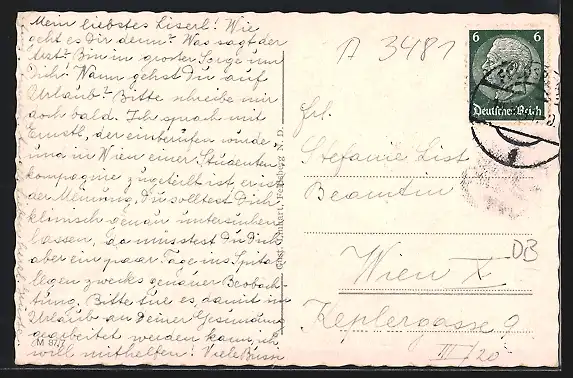 Mein liebstes Liserl! Wie
geht es Dir denn? Was sagt der
Arzt? Bin in großer Sorge um
Dich! Wann gehst Du auf
Urlaub? Bitte schreibe mir
doch bald. Ich sprach mit
Ernstl, der einberufen wurde,
und in Wien einer Studenten
kompagnie zugeteilt ist, er ist
der Meinung, Du solltest Dich
klinisch genau untersuchen
lassen, da müsstest Du Dich
aber ein paar Tage ins Spital
legen zwecks genauer Beobach
tung. Bitte tue es, damit im
Urlaub an Deiner Gesundung
gearbeitet werden kann, ich
will mithelfen! Viele Bussi
M 87/7
N. D.
A 3481
6 6
Deutsches Reich
Frl.
Stefanie List
Beamtin
DB
Wien X.
Keplergasse 9
III/20